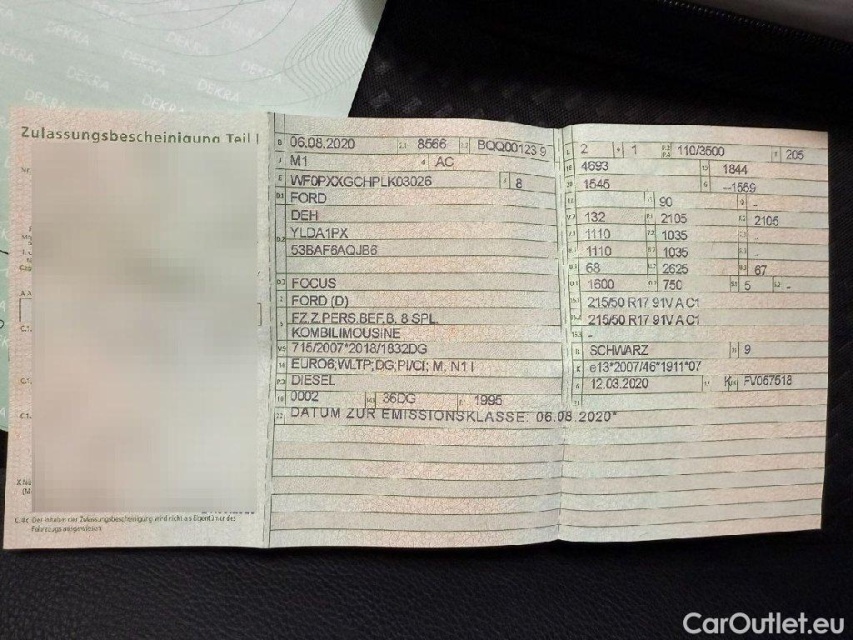 DEKRA
DEKRA
DEKRA
DEKRA
DEKRA
Zulassungsbescheinigung Teil I
B 06.08.2020 2.1 8566 2.2 BQQ00123 9
J M1 4 AC
E WF0PXXGCHPLK03026 3 8
D.1 FORD
DEH
D.2 YLDA1PX
53BAF6AQJB6
D.3 FOCUS
2 FORD (D)
5 FZ.Z.PERS.BEF.B. 8 SPL.
KOMBILIMOUSINE
V.9 715/2007*2018/1832DG
14 EURO6;WLTP;DG;PI/CI; M, N1 I
P.3 DIESEL
10 0002 14.1 36DG P.1 1995
22 DATUM ZUR EMISSIONSKLASSE: 06.08.2020*
L 2 9 1 P.2 P.4 110/3500 T 205
18 4693 19 1844
20 1545 G --1559
12 - 13 90 Q -
V.7 132 F.1 2105 F.2 2105
7.1 1110 7.2 1035 7.3 -
8.1 1110 8.2 1035 8.3 -
U.1 68 U.2 2625 U.3 67
O.1 1600 O.2 750 S.1 5 S.2 -
15.1 215/50 R17 91V A C1
15.2 215/50 R17 91V A C1
15.3 -
R SCHWARZ 11 9
K e13*2007/46*1911*07
6 12.03.2020 17 K 16 FV067518
21
C.4c Der Inhaber der Zulassungsbescheinigung wird nicht als Eigentümer des
Fahrzeugs ausgewiesen.
CarOutlet.eu